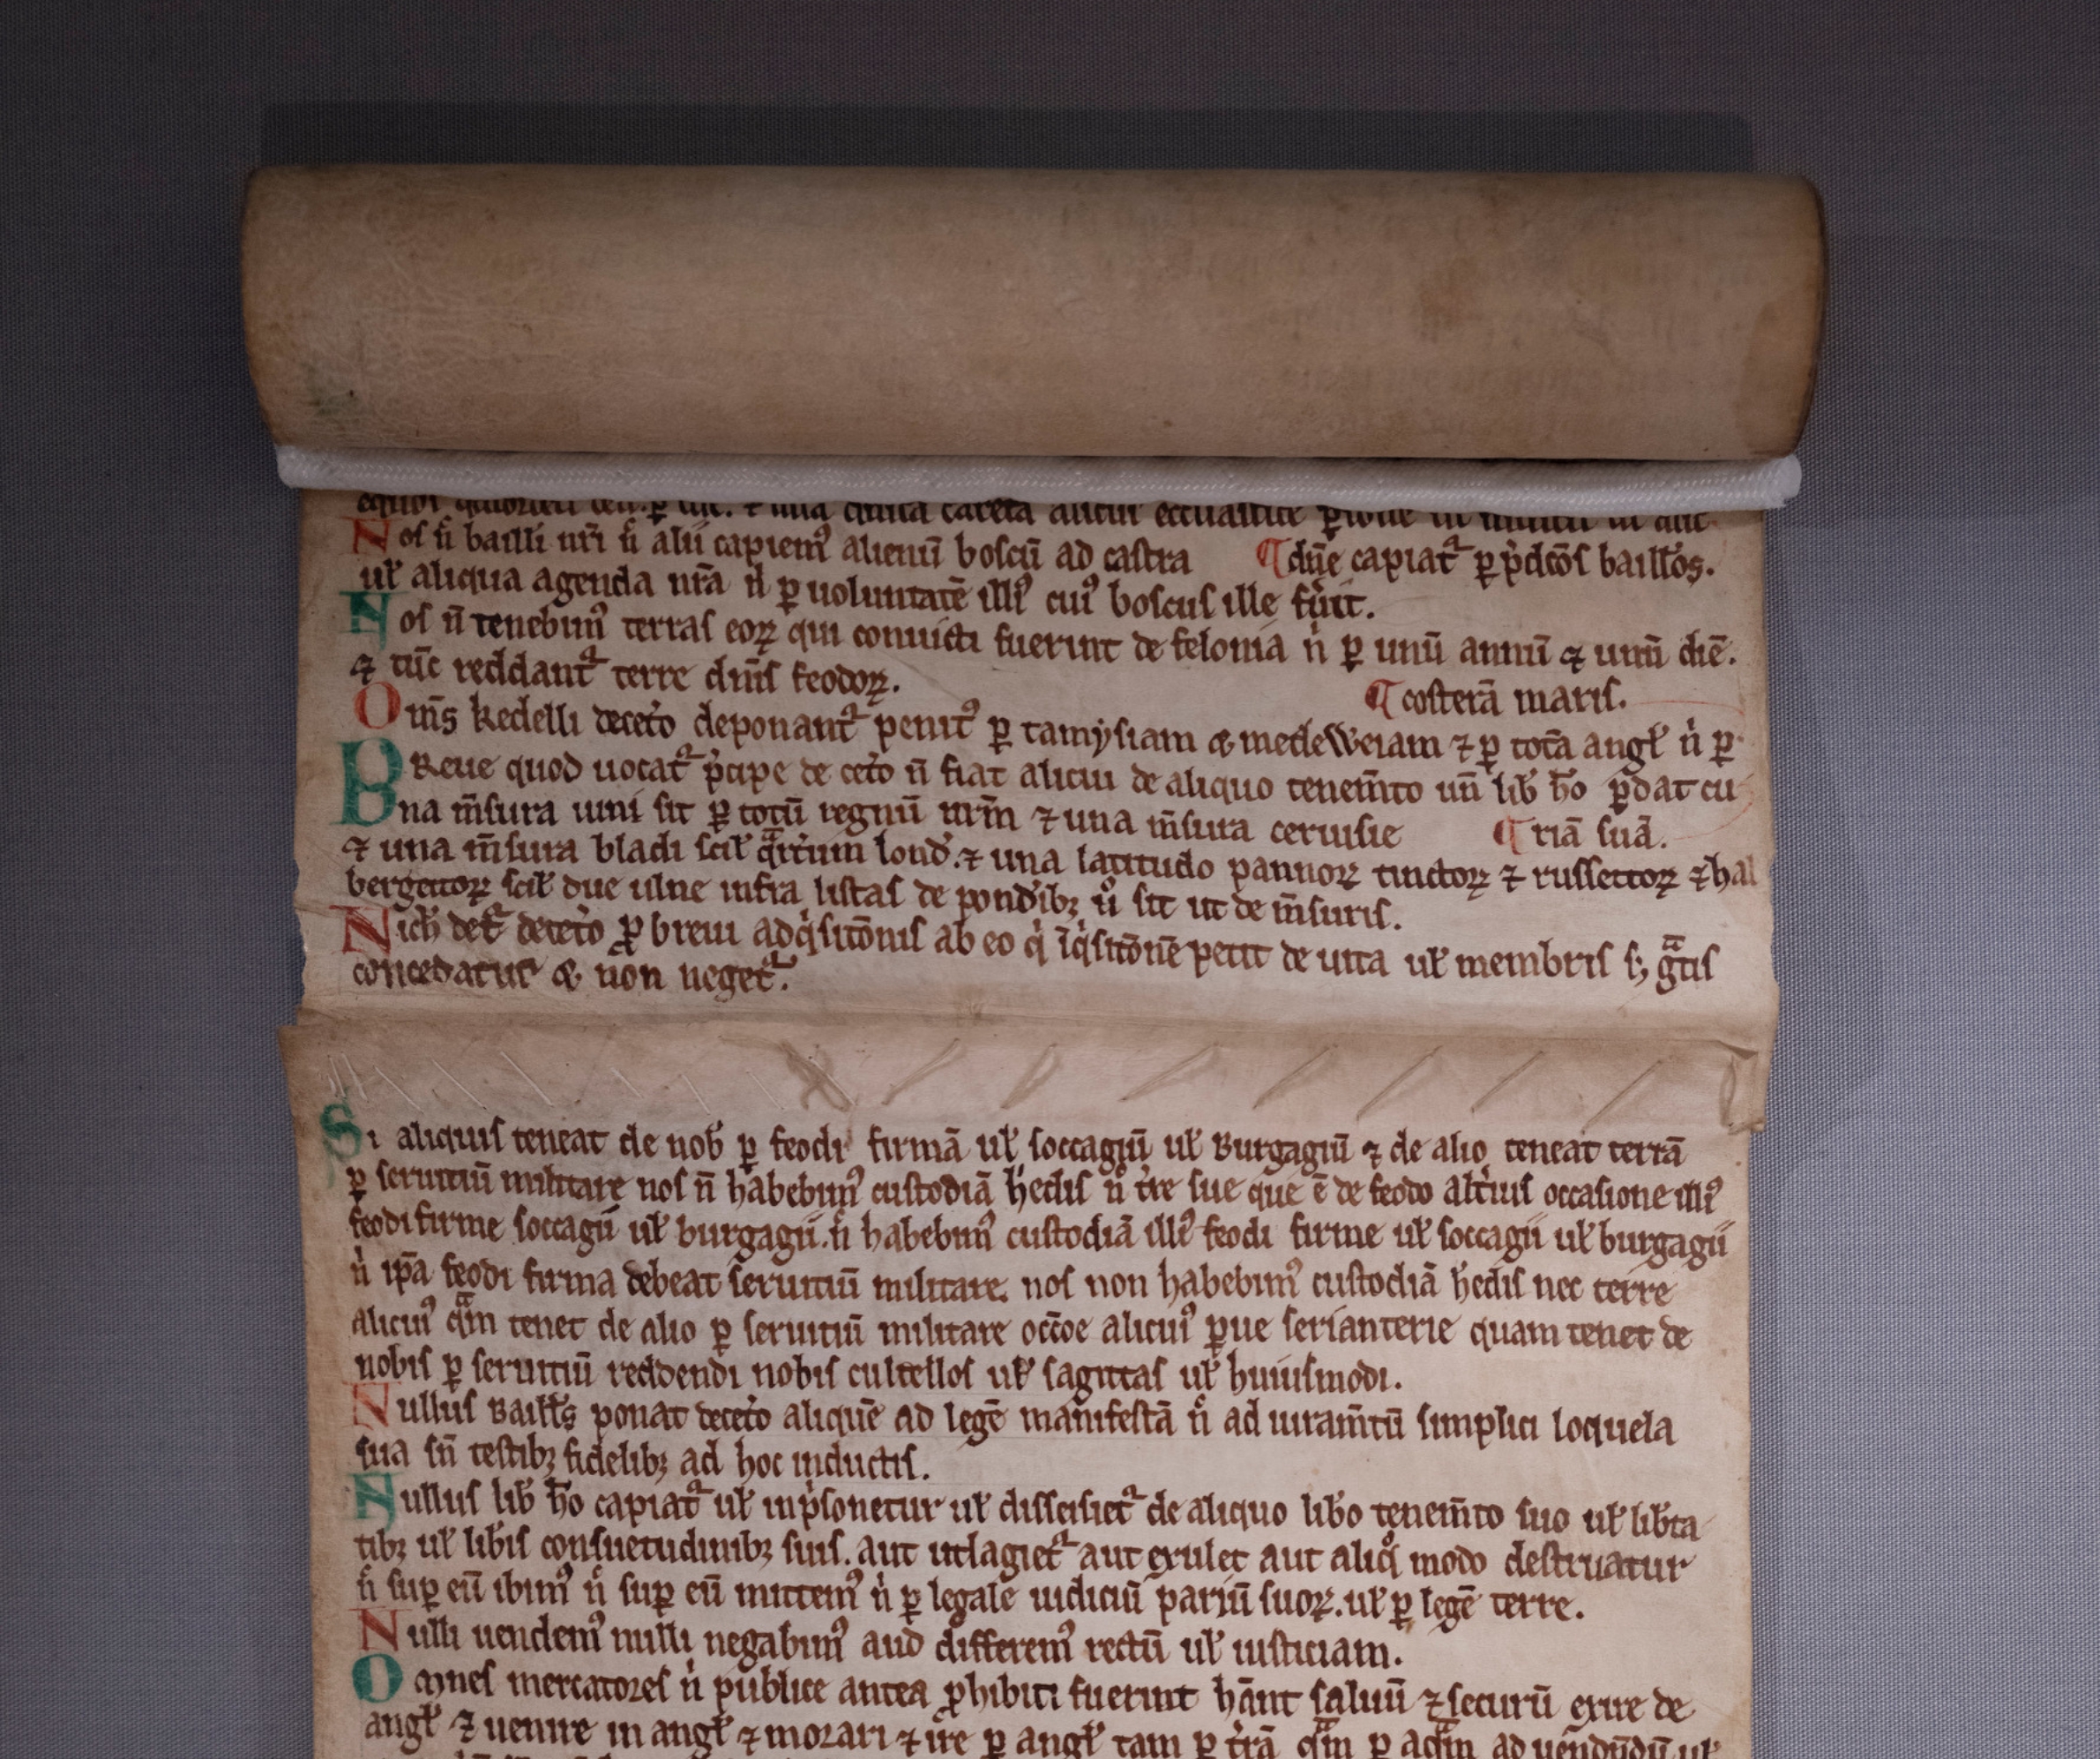 Nos ñ bailli nr̃i ñ alii capiemꝰ alienū boscū ad castra ¶ dñe capiat᷑ ꝑ p̃dcõs baill̃os.
ul̃ aliqua agenda nr̃a ñ ꝑ uoluntatē illiꝰ cuiꝰ boscus ille fũit.
Nos ñ tenebimꝰ terras eoꝝ qui conuicti fuerint de felonia ñ ꝑ unū annū ⁊ unū diē.
⁊ tūc reddant᷑ terre dñis feodoꝝ. ¶ costerā maris.
Om̃s kedelli decet̃o deponant᷑ penitꝰ ꝑ tamysiam ⁊ medeWeiam ⁊ ꝑ totā angl̃ ñ ꝑ
BReue quod uocat᷑ p̃cipe de cet̃o ñ fiat alicui de aliquo tenem̃to un̄ lib̃ h̃o ꝑdat cu
Una m̃sura uini sit ꝑ totū regnū nrm̃ ⁊ una m̃sura ceruisie ¶ riā suā.
⁊ una m̃sura bladi scil̃ q̃rt̃ium lond̃. ⁊ una latitudo pannoꝝ tinctoꝝ ⁊ russettoꝝ ⁊ hal
bergettoꝝ scil̃ due ulne infra listas de pond̃ibꝫ ũ sit ut de m̃suris.
Nich̃ det᷑ decet̃o ꝓ breui adq̃sitōnis ab eo q̃ īq̃sitōnē petit de uita ul̃ membris sꝫ g̃tis
concedatur ⁊ non neget᷑.
Si aliquis teneat de nob̃ ꝑ feodi firmā ul̃ soccagiū ul̃ Burgagiū ⁊ de alio teneat terrā
ꝑ seruitiū militare nos ñ habebimꝰ custodiā h̃edis ñ t̃re sue que ē de feodo alt̃ius occasione illiꝰ
feodi firme soccagii ul̃ burgagii. ñ habebimꝰ custodiā illiꝰ feodi firme ul̃ soccagii ul̃ burgagii
ñ ip̃a feodi firma debeat seruitiū militare. nos non habebimꝰ custodiā h̃edis nec terre
alicuiꝰ q̃m tenet de alio ꝑ seruitiū militare occōe alicuiꝰ ꝑue serianterie quam tenet de
nobis ꝑ seruitiū reddendi nobis cultellos ul̃ sagittas ul̃ huiusmodi.
Nullus Baill̃s ponat decet̃o aliquē ad legē manifestā ñ ad iuram̃tū simplici loquela
sua sñ testibꝫ fidelibꝫ ad hoc inductis.
Nullus lib̃ h̃o capiat᷑ ul̃ inp̃sonetur ul̃ disseisiet᷑ de aliquo lib̃o tenem̃to suo ul̃ lib̃ta
tibꝫ ul̃ lib̃is consuetudinibꝫ suis. aut utlagiet᷑ aut exulet aut aliq̊ modo destruatur
ñ suꝑ eū ibimꝰ ñ suꝑ eū mittemꝰ ñ ꝑ legale iudiciū pariū suoꝝ. ul̃ ꝑ legē terre.
Nulli uendemꝰ nulli negabimꝰ aud differemꝰ rectū ul̃ iusticiam.
Omnes mercatores ñ publice antea ꝓhibiti fuerint hãnt saluū ⁊ securū exire de
angl̃ ⁊ uenire in angl̃ ⁊ morari ⁊ ire ꝑ angl̃ tam ꝑ t̃rā q̃m ꝑ aq̃m ad uēndñdū ul̃